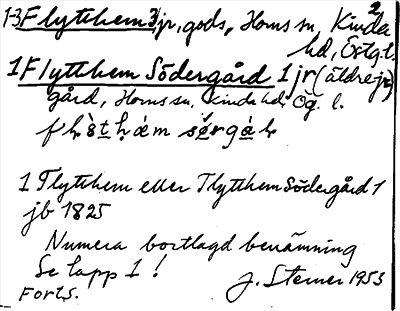 1-3 Flytthem 3 jr, gods, Horns sn, Kinda 2
hd, Östg. l.
1 Flytthem Södergård 1 jr (äldre jr)
gård, Horns sn, Kinda hd, Ög. l.
1 Flytthem eller Flytthem Södergård 1
jb 1825
Numera bortlagd benämning
Se lapp 1!
J. Sterner 1953
Forts.